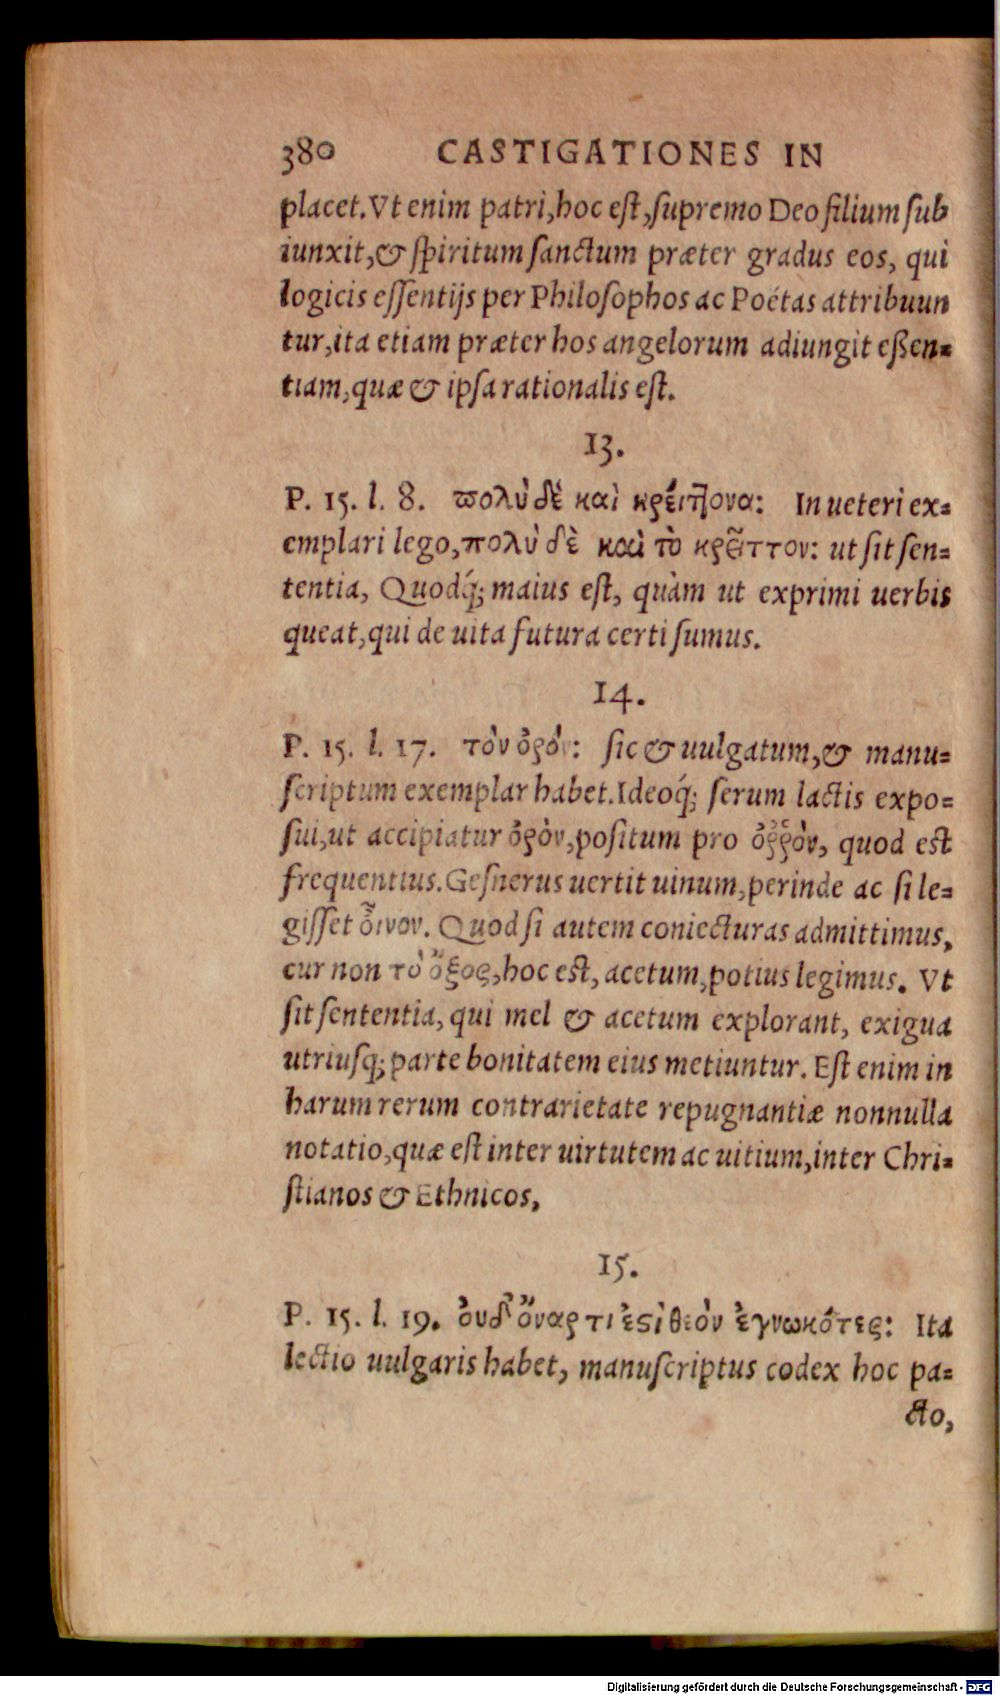 380 CASTIGATIONES IN
placet. Vt enim patri, hoc est, supremo Deo filium sub
iunxit, & spiritum sanctum præter gradus eos, qui
logicis essentijs per Philosophos ac Poëtas attribuun
tur, ita etiam præter hos angelorum adiungit eßen=
tiam, quæ & ipsa rationalis est.
13.
P. 15. l. 8. πολὺ δὲ καὶ κρείττονα: In ueteri ex=
emplari lego, πολὺ δὲ καὶ τὸ κρεῖττον: ut sit sen=
tentia, Quodq́; maius est, quàm ut exprimi uerbis
queat, qui de uita futura certi sumus.
14.
P. 15. l. 17. τὸν ὀρόν: sic & uulgatum, & manu=
scriptum exemplar habet. Ideoq́; serum lactis expo=
sui, ut accipiatur ὀρὸν, positum pro ὀῤῥὸν, quod est
frequentius. Gesnerus uertit uinum, perinde ac si le=
gisset οἶνον. Quod si autem coniecturas admittimus,
cur non τὸ ὄξος, hoc est, acetum, potius legimus. Vt
sit sententia, qui mel & acetum explorant, exigua
utriusq; parte bonitatem eius metiuntur. Est enim in
harum rerum contrarietate repugnantiæ nonnulla
notatio, quæ est inter uirtutem ac uitium, inter Chri=
stianos & Ethnicos,
15.
P. 15. l. 19. ὀυδ᾽ ὄναρ τι ἐςὶ θεὸν ἐγνωκότες: Ita
lectio uulgaris habet, manuscriptus codex hoc pa=
cto,
Digitalisierung gefördert durch die Deutsche Forschungsgemeinschaft - DFG